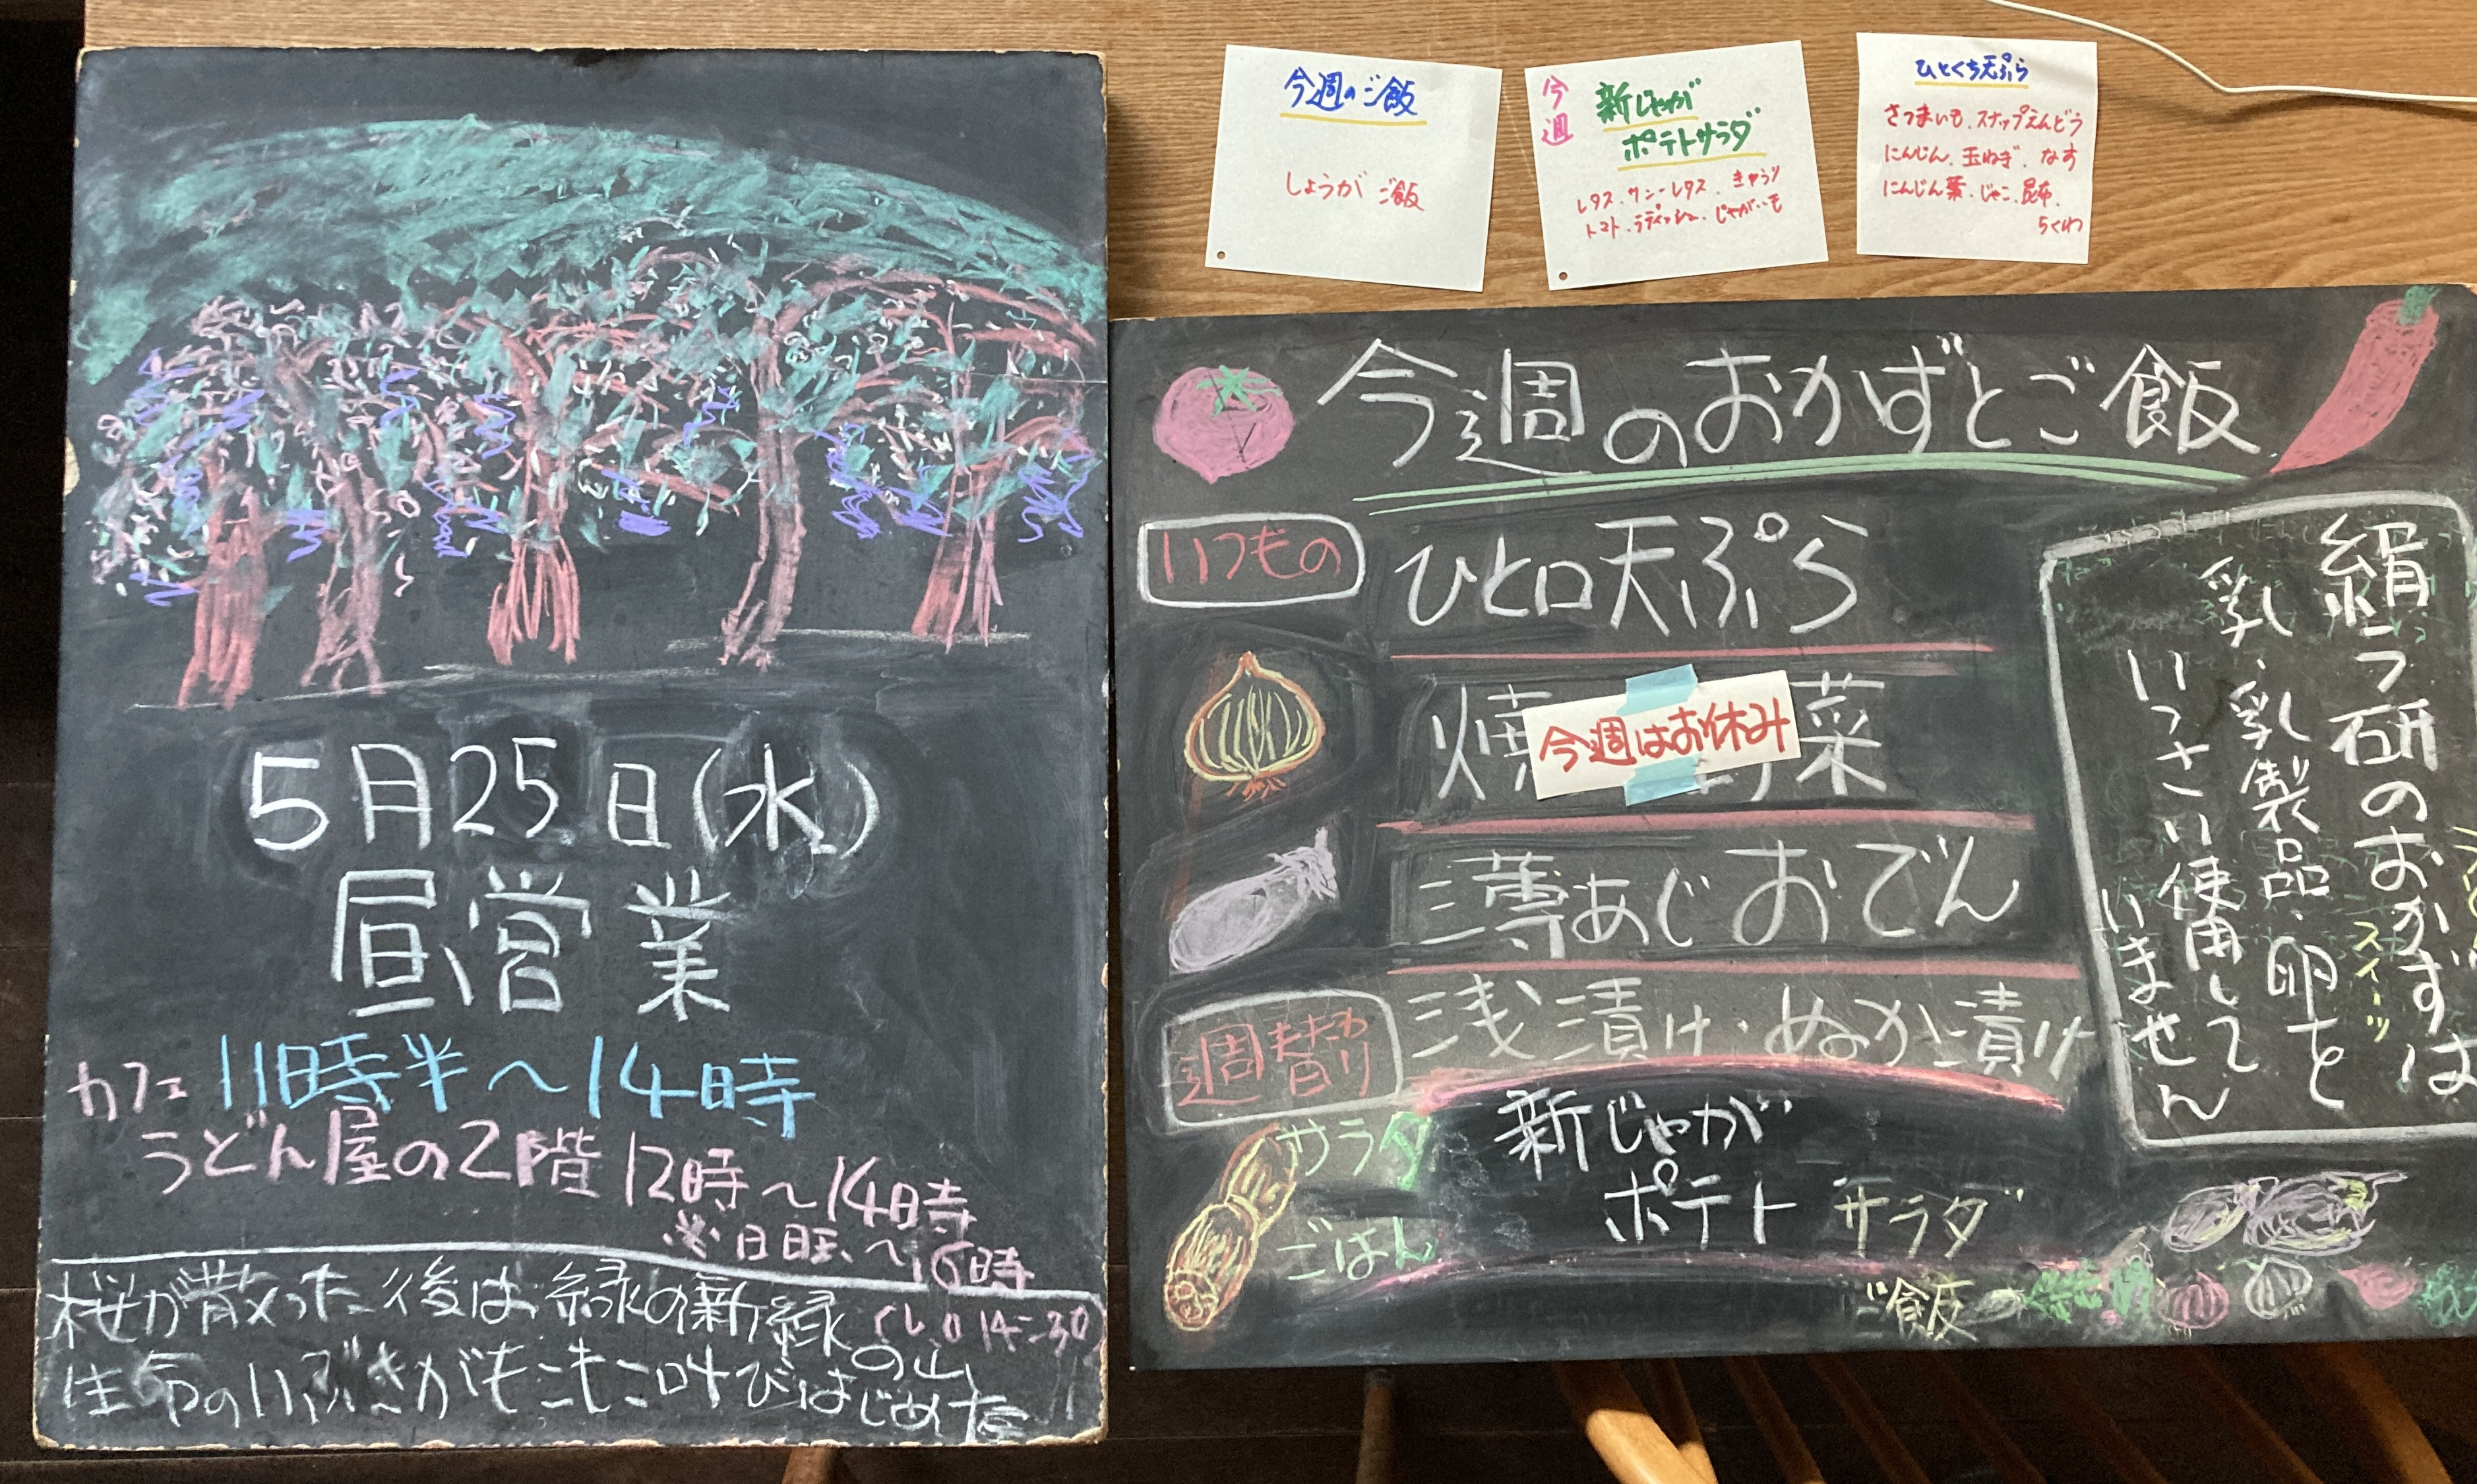 5月25日(水)
昼営業
カフェ 11時半〜14時
うどん屋の2階 12時〜14時
※日曜〜16時
L.O 14:30
桜が散った後は緑の新緑の山
生命のいぶきがもこもこ叫びはじめた
今週のご飯
しょうがご飯
今週
新じゃが
ポテトサラダ
レタス.サニーレタス.きゅうり
トマト.ラディッシュ.じゃがいも
ひとくち天ぷら
さつまいも.スナップえんどう
にんじん.玉ねぎ.なす
にんじん葉.じゃこ.昆布.
ちくわ
今週のおかずとご飯
いつもの
ひと口天ぷら
焼 菜
今週はお休み
薄あじおでん
週替わり
浅漬け・ぬか漬け
サラダ
新じゃが
ポテトサラダ
ごはん
ご飯
絹ラ研のおかずは
乳、乳製品、卵を
いっさい使用して
いません
スイーツ